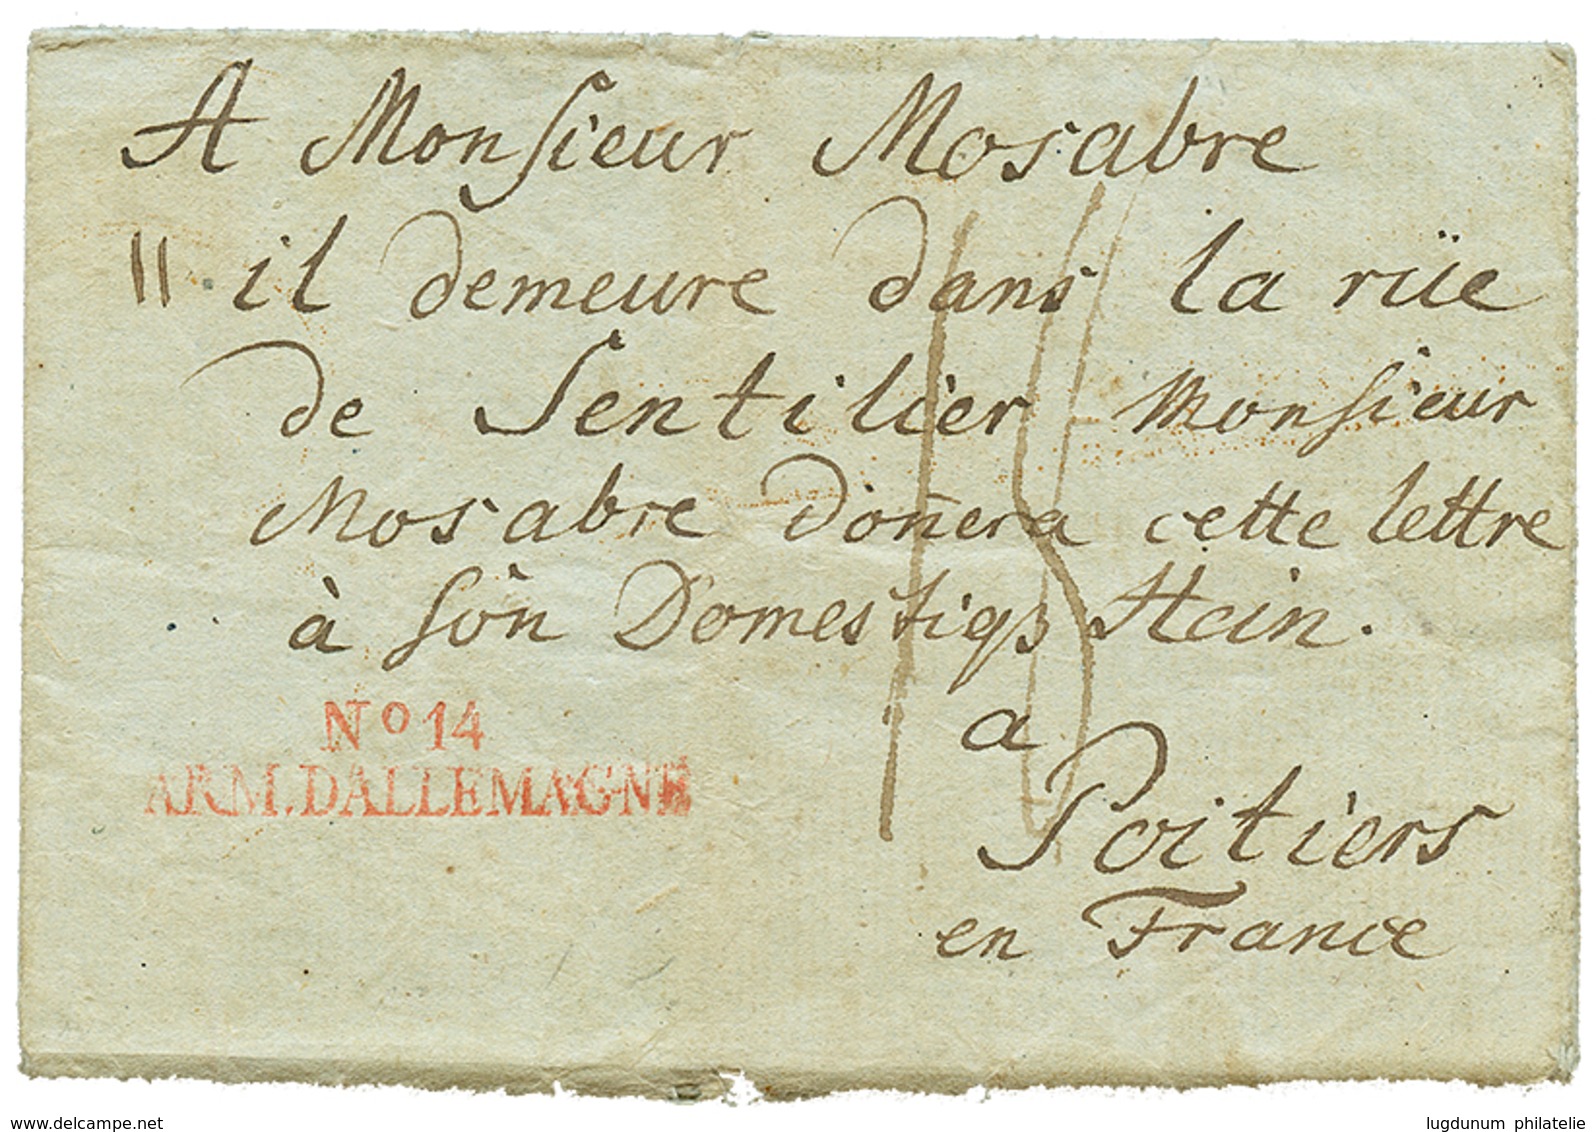 A Monsieur Mosabre
" il demeure dans la rüe
de Sentilier Monsieur
Mosabre doñera cette lettre
à son Domestiqs Hein.
a
Poitiers
en France
15
No 14
ARM. DALLEMAGNE
www.delcampe.net
lugdunum philatelie